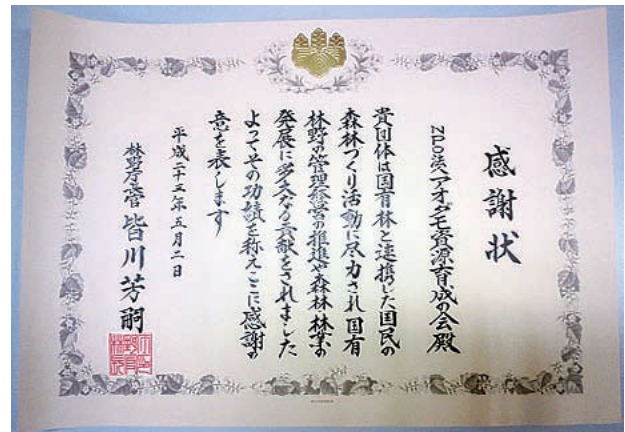 感謝状
NPO法人アオダモ資源育成の会殿
貴団体は国有林と連携した国民の
森林づくり活動に尽力され国有
林野の管理経営の推進や森林・林業の
発展に多大なる貢献をされました
よってその功績を称えここに感謝の
意を表します
平成二十三年五月二日
林野庁長官 皆川芳嗣